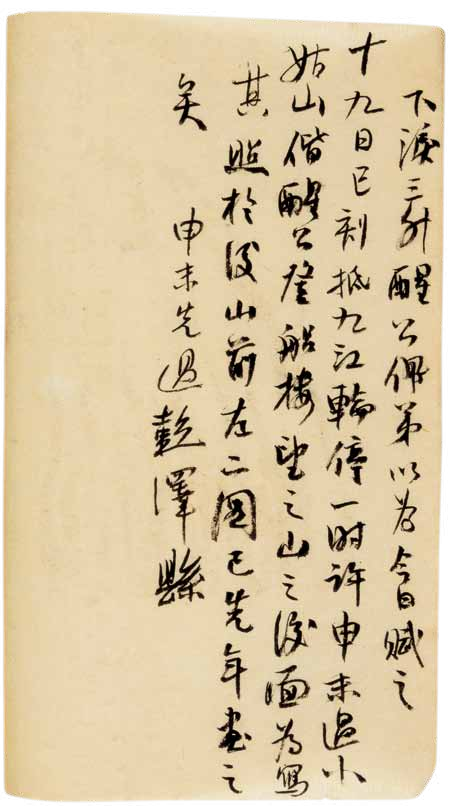 下淚三升醒公俾弟以為今日賦之
十九日巳刻抵九江輪停一時許申末過小
姑山偕醒公登船樓望之山之後面為寫
其照於後山前左二圖已先年畫之
矣　申末先過彭澤縣